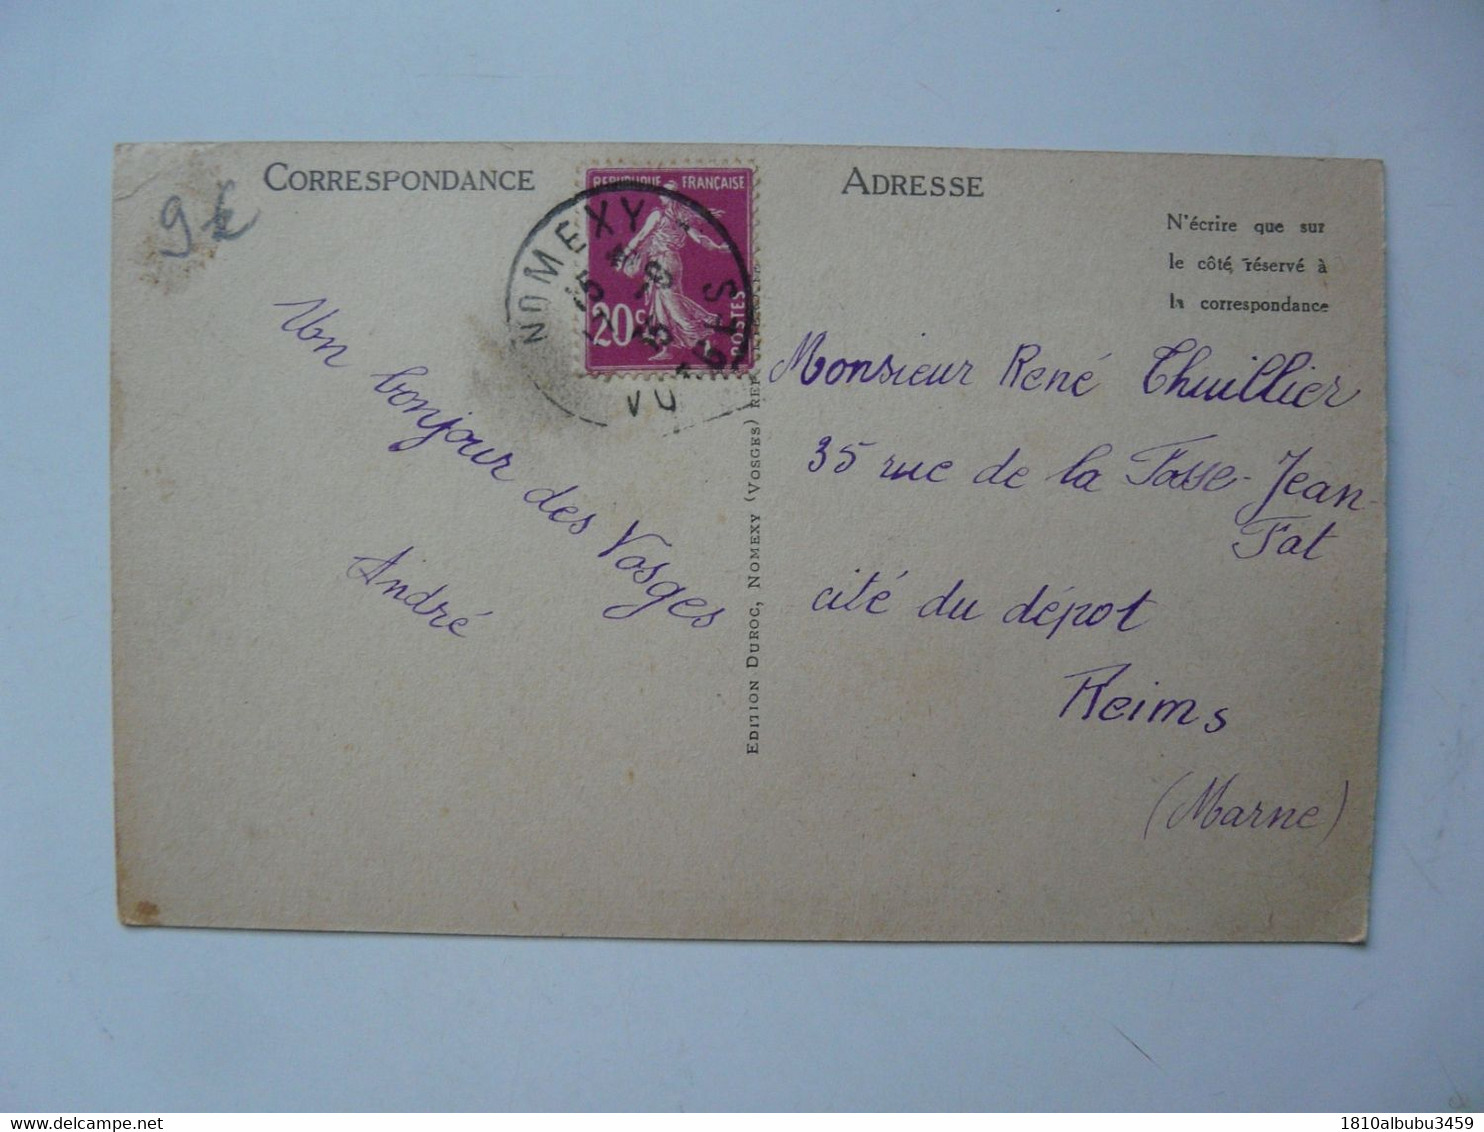 CORRESPONDANCE
ADRESSE
N'écrire que sur
le côté réservé à
la correspondance
RÉPUBLIQUE FRANÇAISE
20c
POSTES
NOMEXY
VOSGES
Un bonjour des Vosges
André
EDITION DUROC, NOMEXY (VOSGES)
Monsieur René Thuillier
35 rue de la Fosse-Jean-
Fat
cité du dépôt
Reims
(Marne)
1810albubu3459